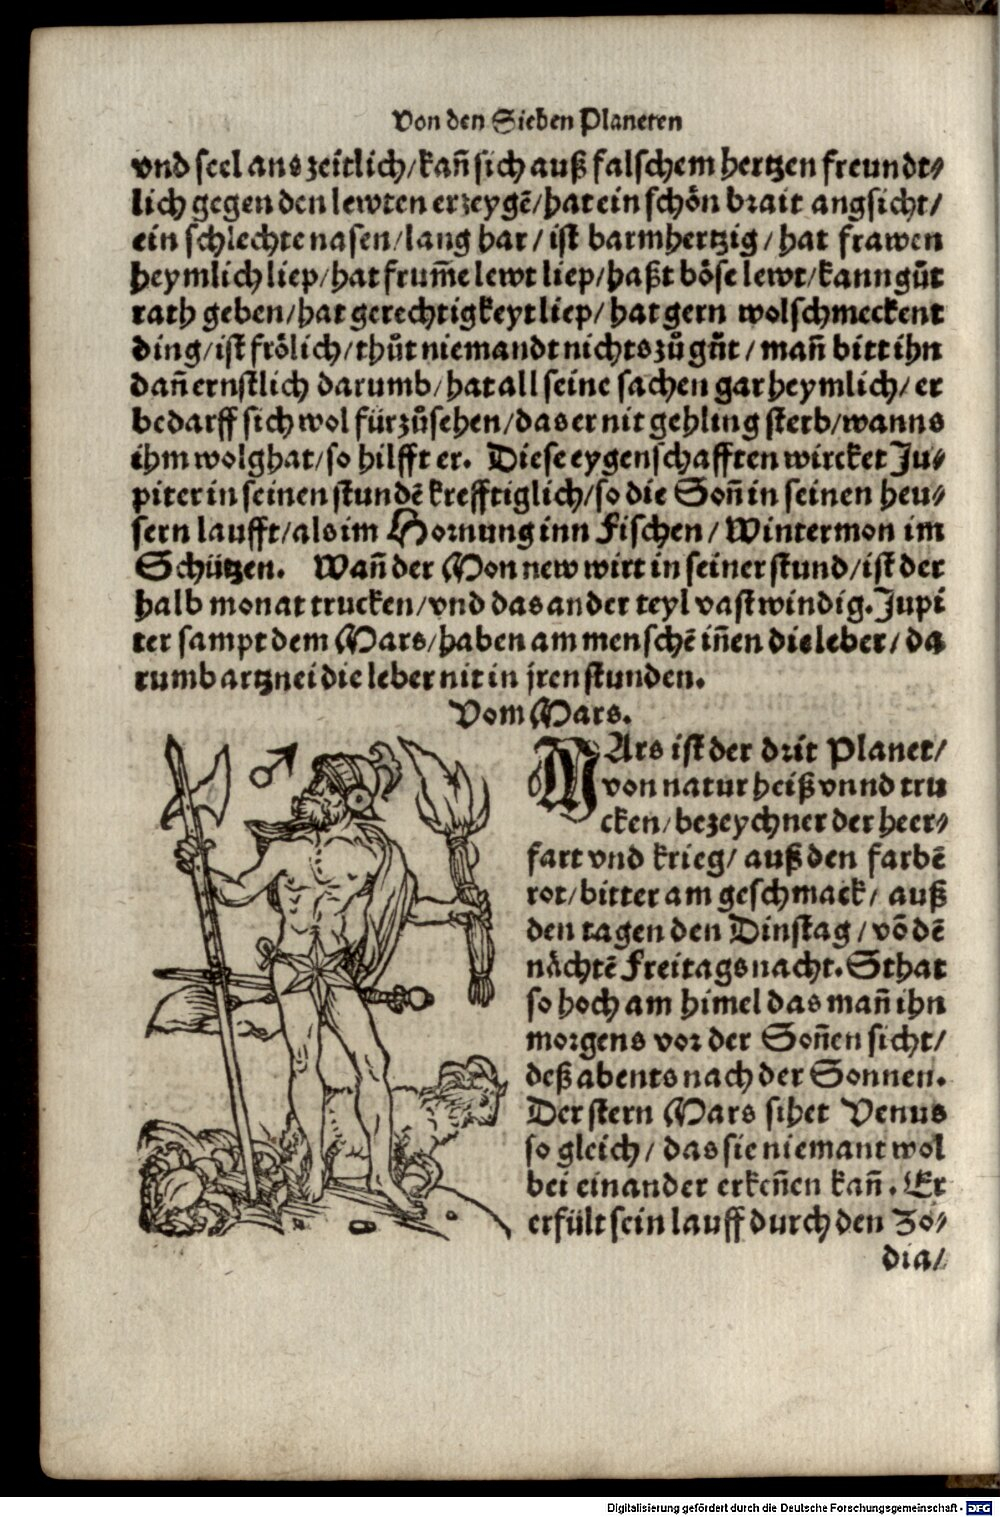 Von den Sieben Planeten
vnd seel ans zeitlich/kañ sich auß falschem hertzen freundt⸗
lich gegen den lewten erzeygẽ/hat ein schön brait angsicht/
ein schlechte nasen/lang har/ist barmhertzig/hat frawen
heymlich liep/hat frum̃e lewt liep/haßt böse lewt/kann gůt
rath geben/hat gerechtigkeyt liep/hat gern wolschmeckent
ding/ist frölich/thůt niemandt nichts zů gůt/mañ bitt ihn
dañ ernstlich darumb/hat all seine sachen gar heymlich/er
bedarff sich wol fürzůsehen/das er nit gehling sterb/wanns
ihm wolghat/so hilfft er. Diese eygenschafften wircket Ju⸗
piter in seinen stundẽ krefftiglich/so die Soñ in seinen heu⸗
sern laufft/als im Hornung inn Fischen/Wintermon im
Schützen. Wañ der Mon new wirt in seiner stund/ist der
halb monat trucken/vnd das ander teyl vast windig. Jupi
ter sampt dem Mars/haben am menschẽ iñen die leber/da
rumb artznei die leber nit in jren stunden.
Vom Mars.
♂
MArs ist der drit Planet/
von natur heiß vnnd tru
cken/bezeychnet der heer⸗
fart vnd krieg/auß den farbẽ
rot/bitter am geschmack/auß
den tagen den Dinstag/võ dẽ
nächtẽ Freitagsnacht. Sthat
so hoch am himel das mañ ihn
morgens vor der Soñen sicht/
deß abents nach der Sonnen.
Der stern Mars sihet Venus
so gleich/das sie niemant wol
bei einander erkeñen kañ. Er
erfült sein lauff durch den Zo⸗
dia/
Digitalisierung gefördert durch die Deutsche Forschungsgemeinschaft - DFG